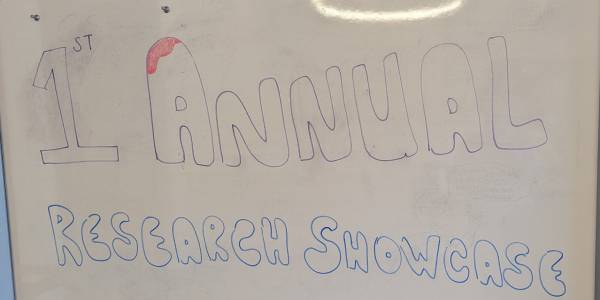 1ST ANNUAL
RESEARCH SHOWCASE